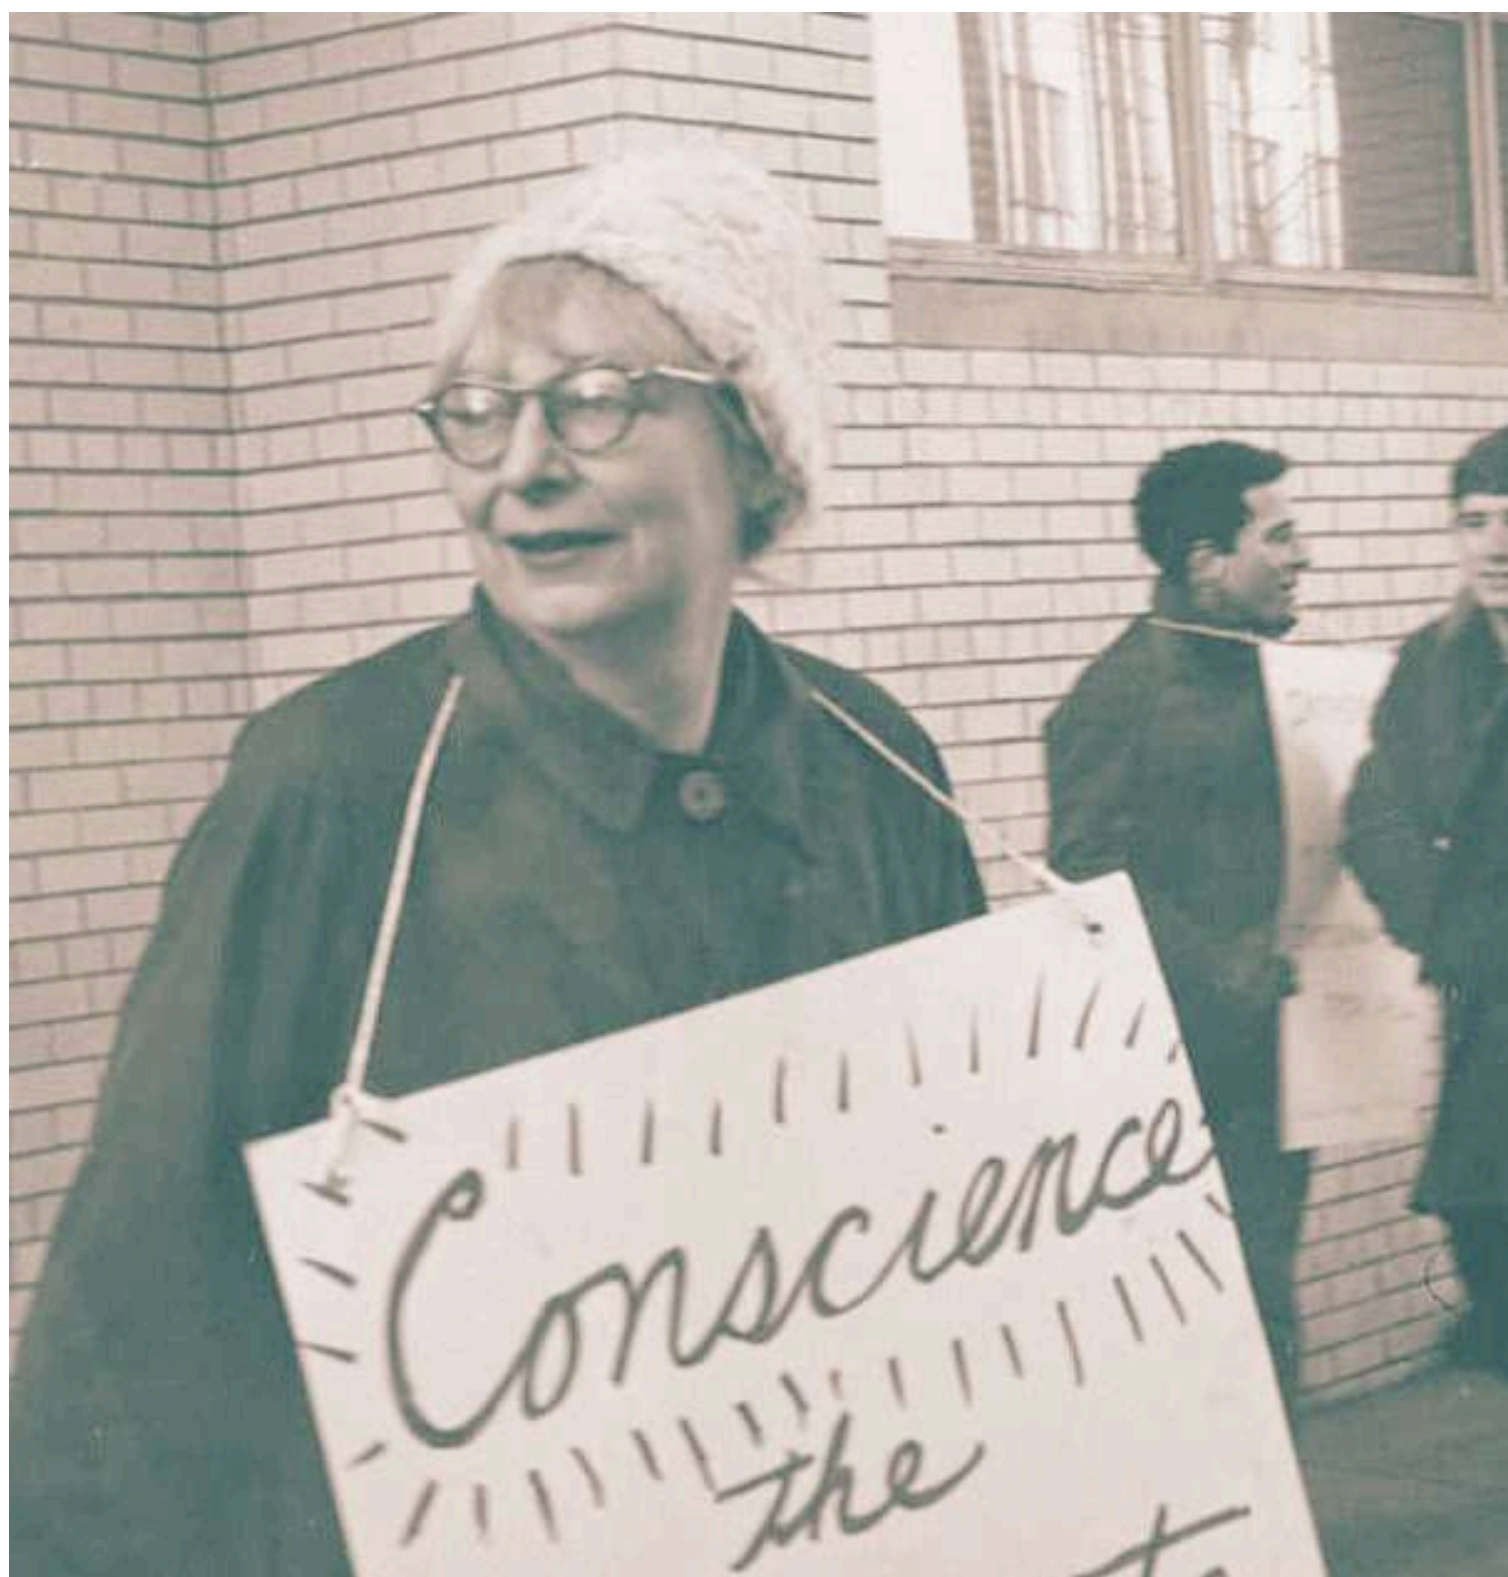 Conscience
the